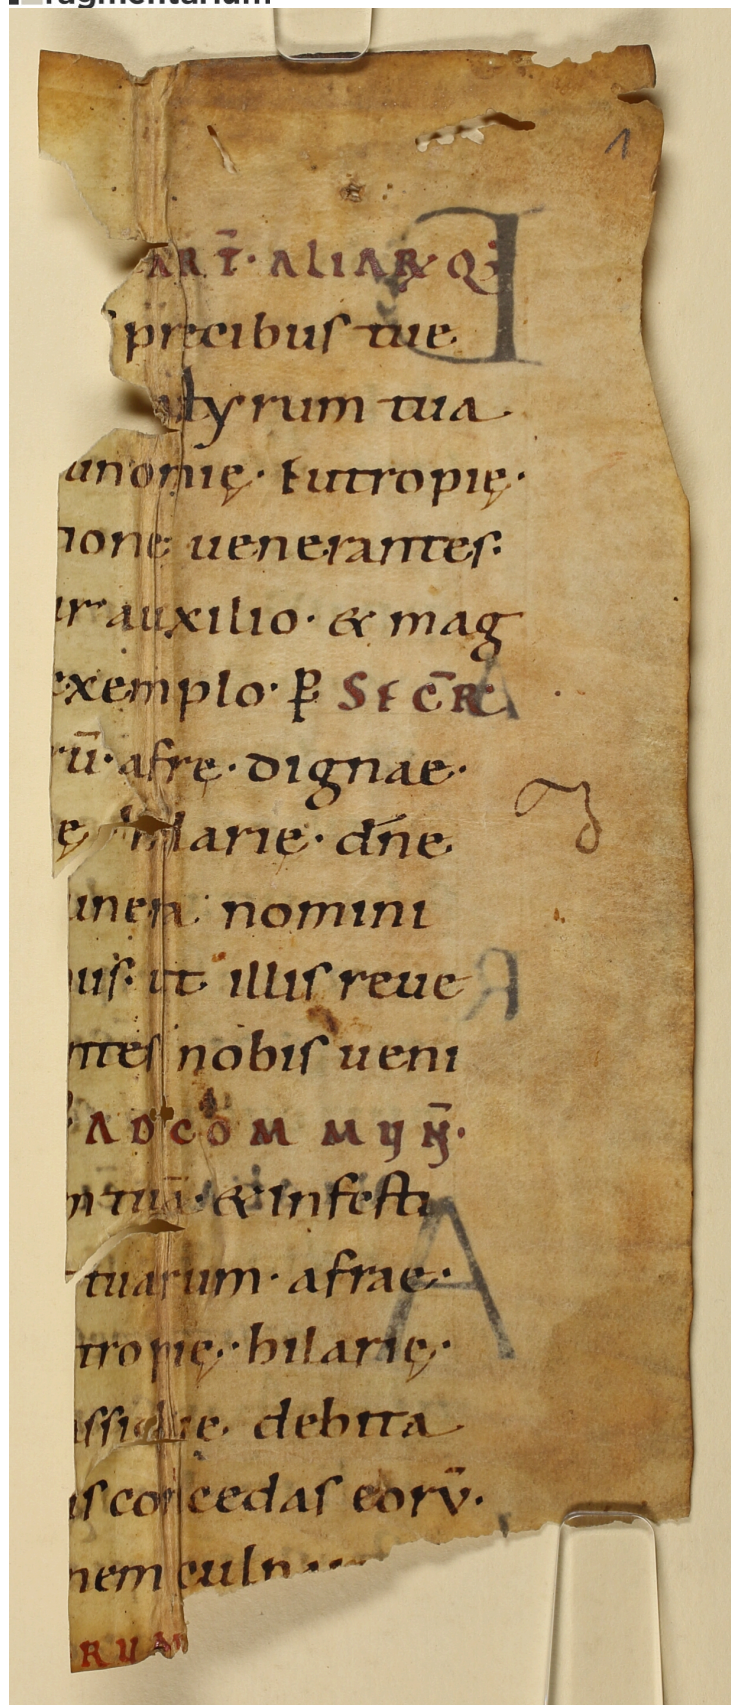 fragmentarium
1
ART̄· ALIARŪQ;
precibus tue
tyrum tua
anonię· Eutropię·
ione uenerantes·
ur auxilio· & mag
exemplo· ꝑ SECR̄
rū· afrę· dignae·
ę hilarię· dn̄e
unera nomini
uis· ut illis reue
ntes nobis ueni
ADCOMMUN̄·
m tuā· & infesti
tuarum· afrae·
tropię· hilarię·
assidue debita
is concedas eorū·
nem culp
RUM